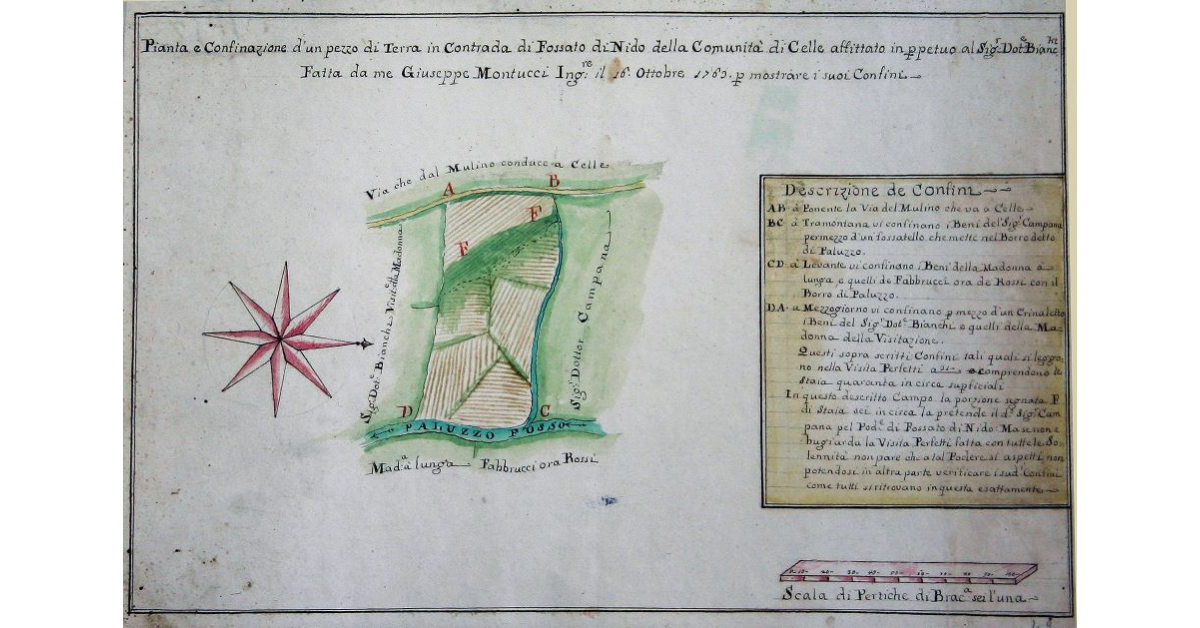 Pianta e Confinazione d'un pezzo di Terra in Contrada di Fossato di Nido della Comunità di Celle affittato in ꝑpetuo al Sig.r Dot.e Bianc.hi
Fatta da me Giuseppe Montucci Ing.re il 16. Ottobre 1763. ꝑ mostrare i suoi Confini.
Via che dal Mulino conduce a Celle
A
B
F
F
Sig.r Dot.e Bianchi
Visit.e dla Madonna
Sig.r Dottor Campana
D
C
PALUZZO FOSSO
Mad.a a lunga Fabbrucci ora Rossi
Descrizione de Confini
AB à Ponente la Via del Mulino che va a Celle
BC à Tramontana vi confinano i Beni del Sig.r Campana
per mezzo d'un fossatello che mette nel Borro detto
di Paluzzo.
CD à Levante vi confinano i Beni della Madonna a
lunga e quelli de Fabbrucci ora de Rossi con il
Borro di Paluzzo.
DA a Mezzogiorno vi confinano ꝑ mezzo d'un Crinaletto
i Beni del Sig.r Dot.e Bianchi e quelli della Ma-
donna della Visitazione.
Questi sopra scritti Confini tali quali si leggo-
no nella Visita Perfetti a comprendono le
Staia quaranta in circa supficiali
In questo descritto Campo la porzione signata F
di Staia sei in circa la pretende il d.o Sig.r Cam
pana pel Pod.e di Fossato di Nido: Ma se non e
bugiarda la Visita Perfetti fatta con tutte le So-
lennità non pare che a tal Podere si aspetti, non
potendosi in altra parte verificare i sud.i Confini
come tutti si ritrovano in questa esattamente
Scala di Pertiche di Brac.a sei l'una